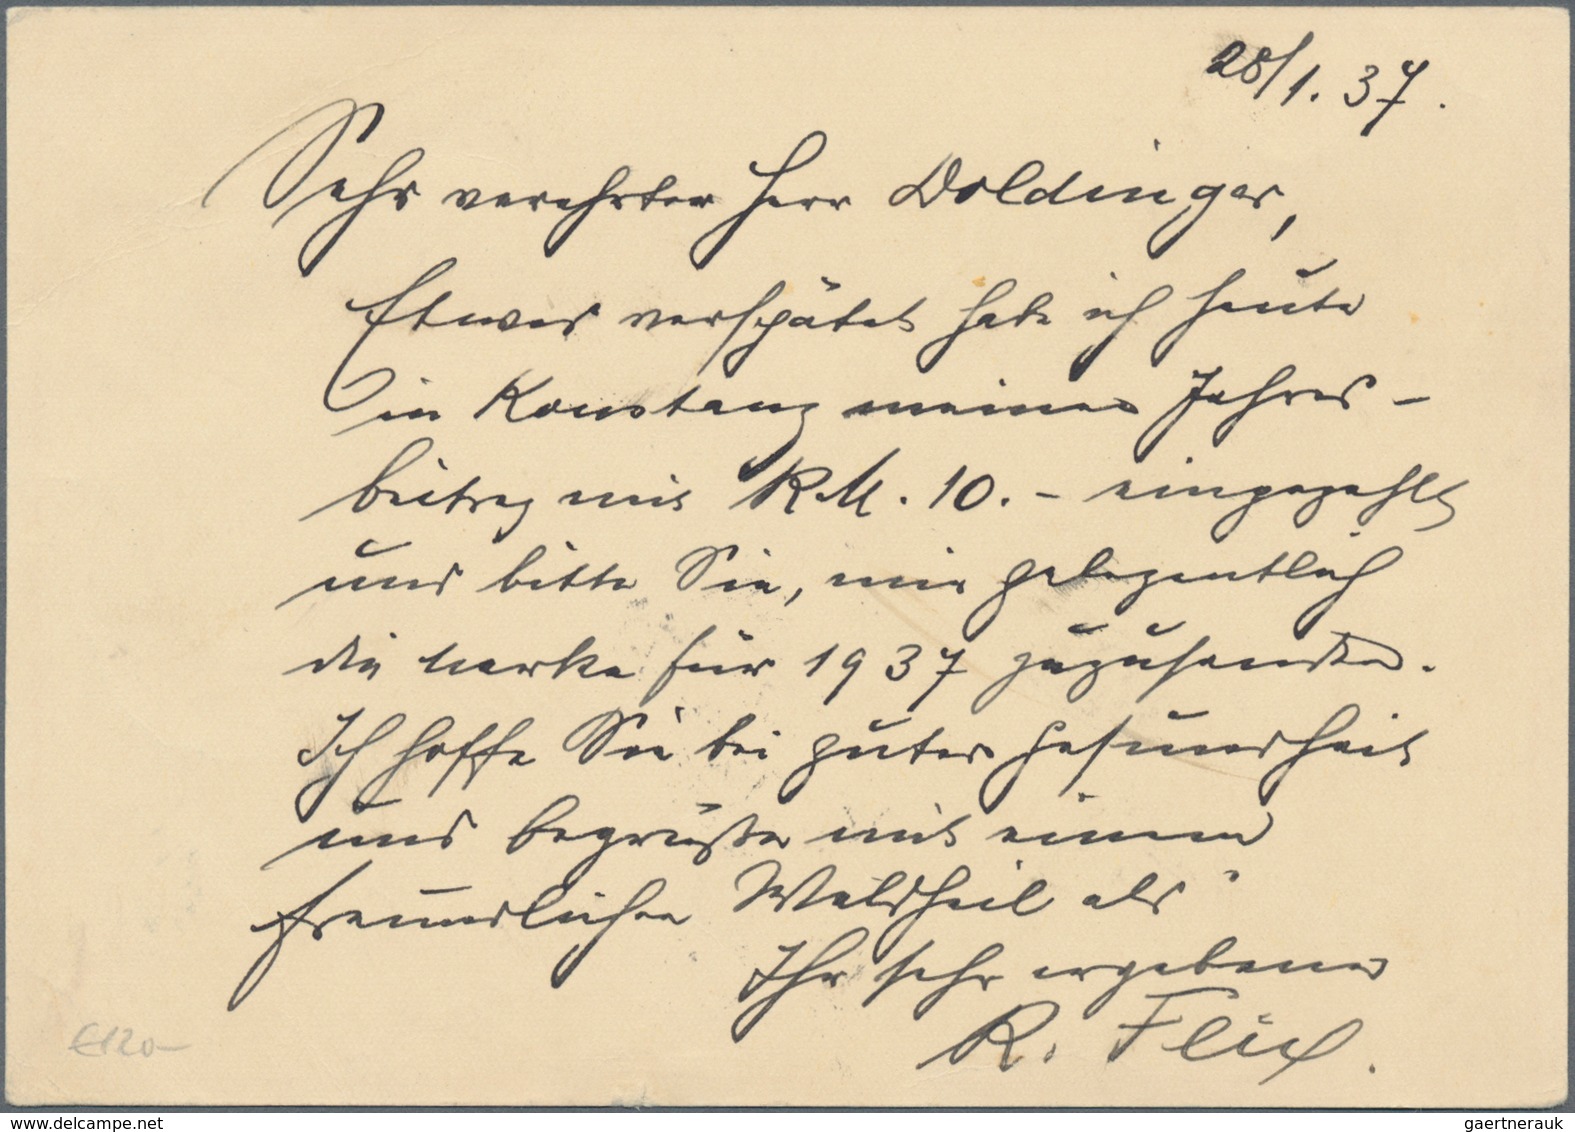 28/1.37.
Sehr verehrter Herr Doldinger,
Etwas verspätet habe ich heute
in Konstanz meinen Jahres-
beitrag mit RM. 10.- eingezahlt
und bitte Sie, mir gelegentlich
die Marke für 1937 zuzusenden.
Ich hoffe Sie bei guter Gesundheit
und begrüße mit einem
freundlichen Waldheil als
Ihr sehr ergebener
R. Flix.
€120-
delcampe.net
gaertnerauk